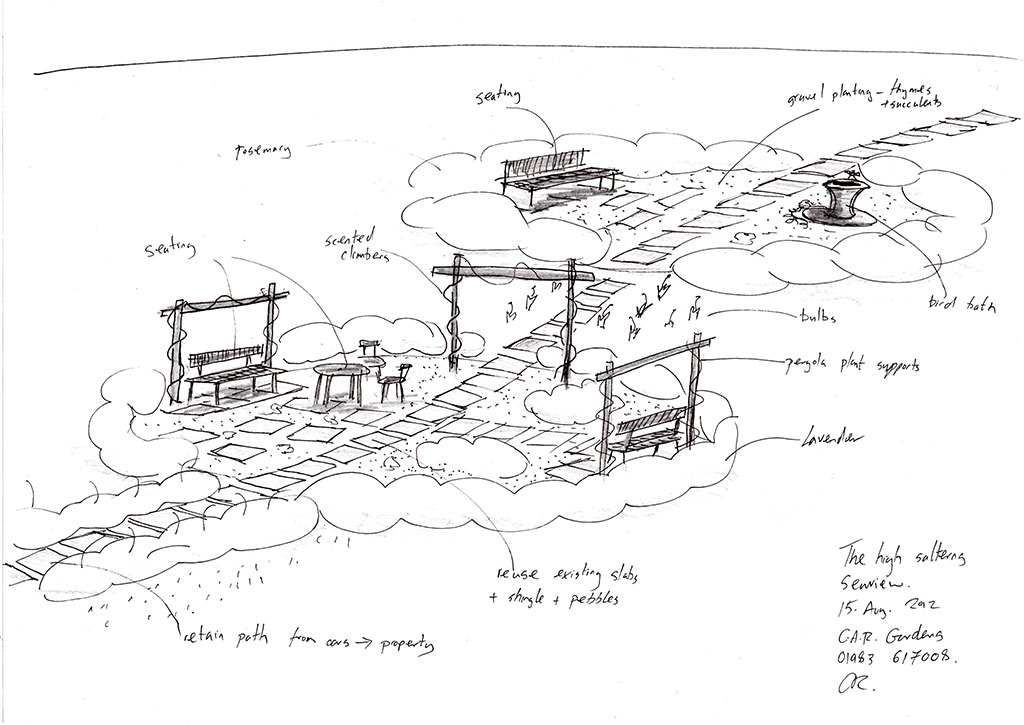 seating
gravel planting - thymes
+ succulents
rosemary
seating
scented
climbers
bird bath
bulbs
pergola plant supports
lavender
reuse existing slabs
+ shingle + pebbles
retain path from cars → property
The high salterns
Seaview.
15. Aug.
C.A.R. Gardens
01983 617008.